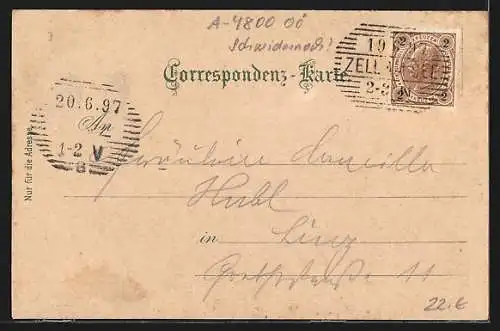 A-4800 00
Schwidernoch!
Correspondenz-Karte
19
ZELL SEE
2-3
2 2
2 2
20.6.97
1-2 V
8
An
Nur für die Adresse
Fräulein Camilla
Hubl
in Linz
Goethestraße 11
22.€